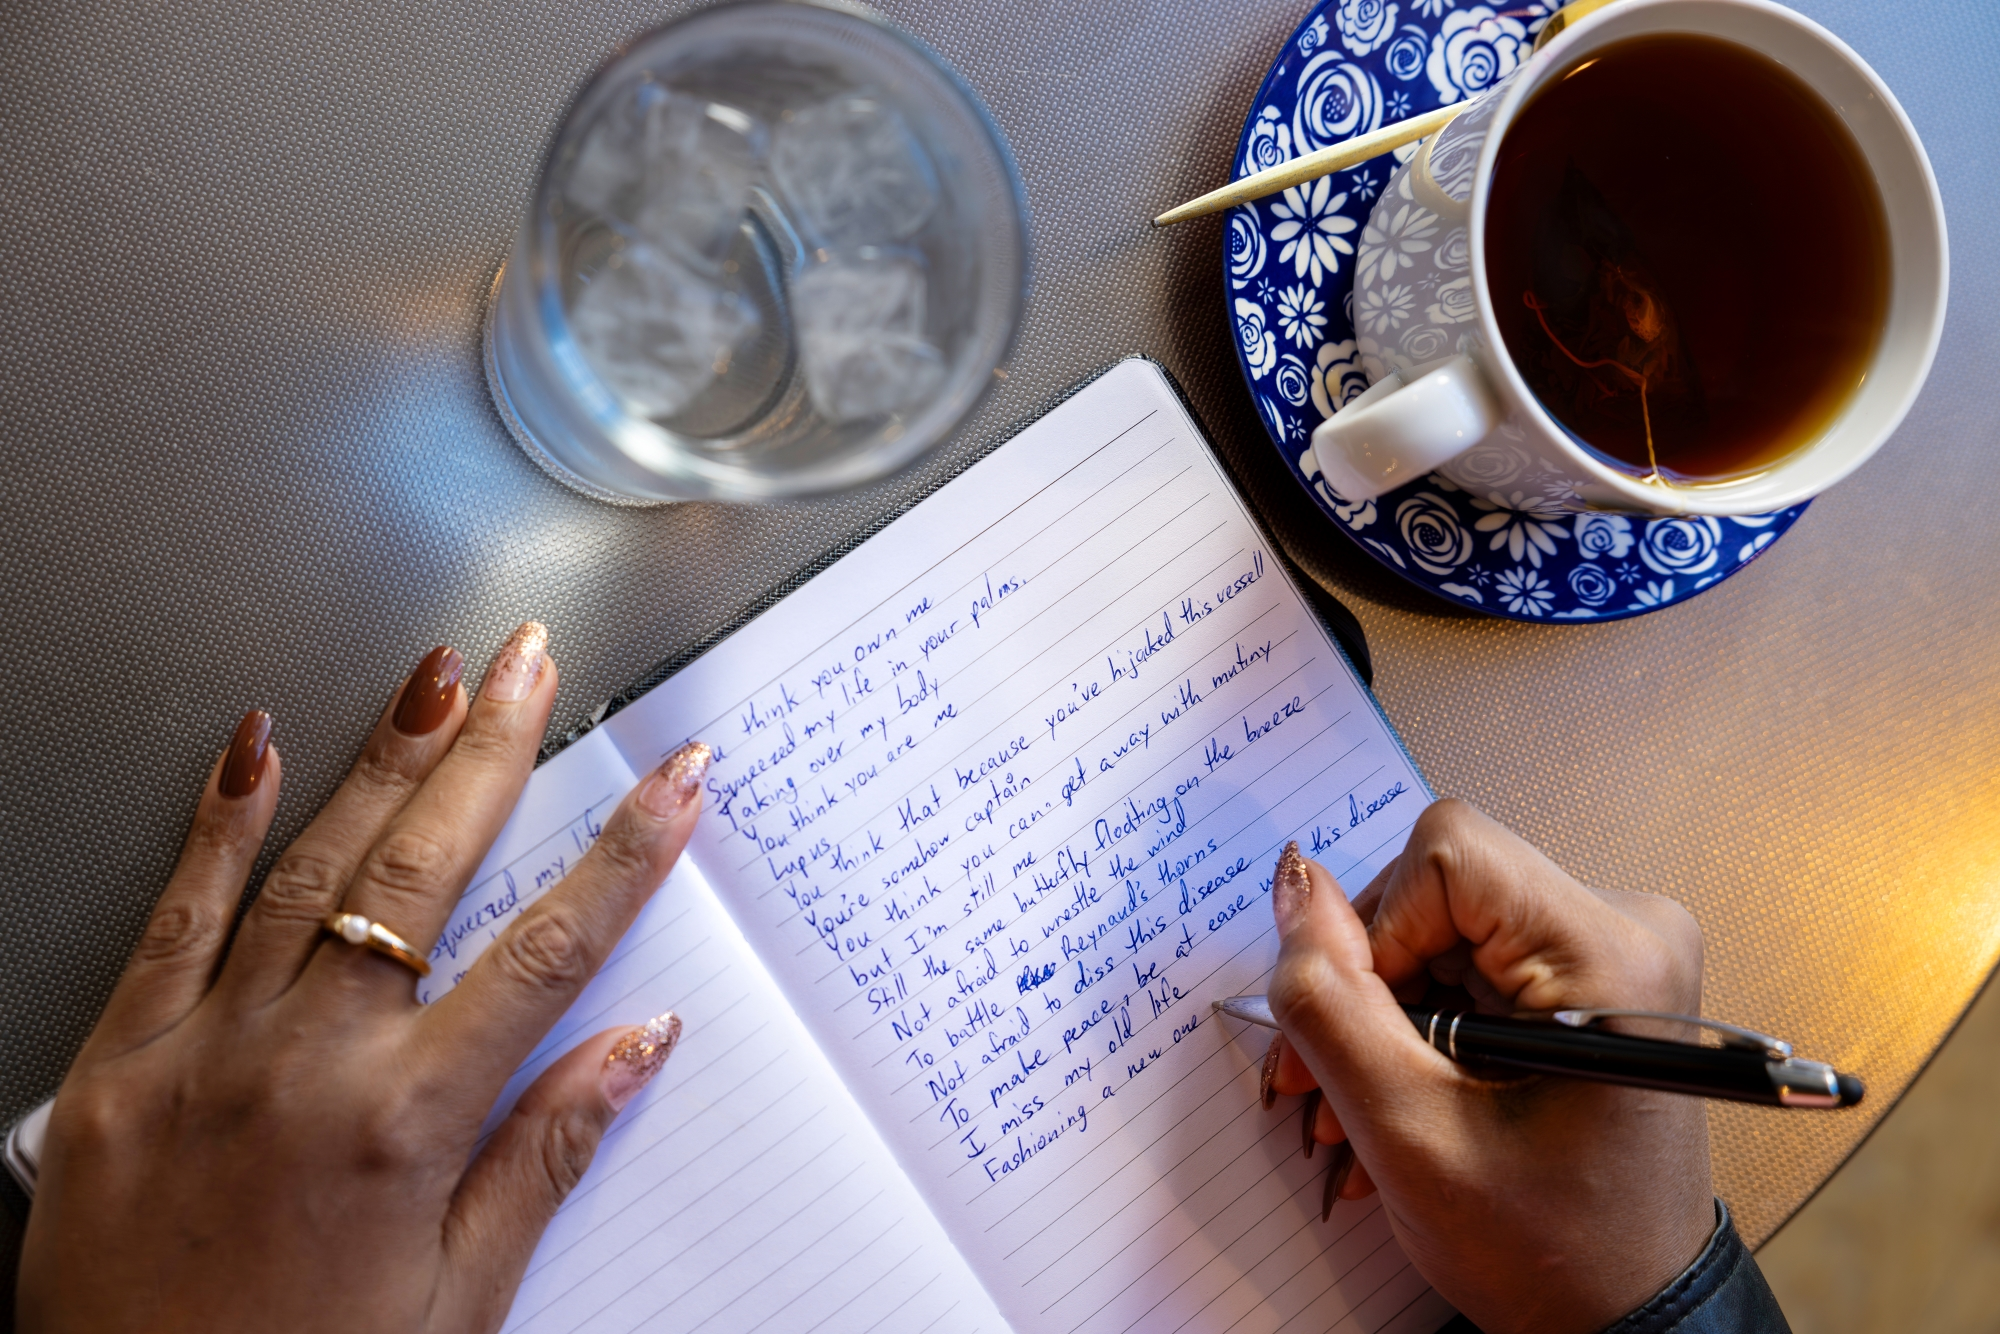 squeezed my life
think you own me
Squeezed my life in your palms.
Taking over my body
You think you are me
Lupus
You think that because you've hijacked this vessell
You're somehow captain
You think you can get away with mutiny
but I'm still me
Still the same butterfly floating on the breeze
Not afraid to wrestle the wind
To battle Reynaud's thorns
Not afraid to diss this disease
To make peace, be at ease this disease
I miss my old life
Fashioning a new one